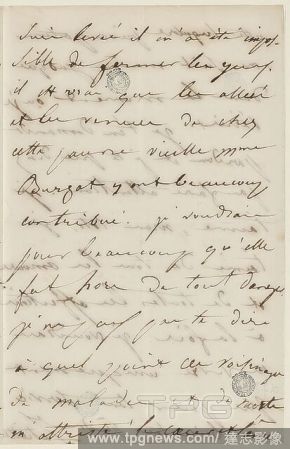 suis levé il m a été impos
sible de fermer les yeux.
il est vrai que les allées
et les venues de chez
cette pauvre vieille mme
Bourgot y ont beaucoup
contribué. je voudrais
pour beaucoup qu'elle
fut hors de tout danger
je ne puis pas te dire
à quel point ce voisinage
de maladie et de
m attriste le
TPG
www.tpgnews.com/達志影像